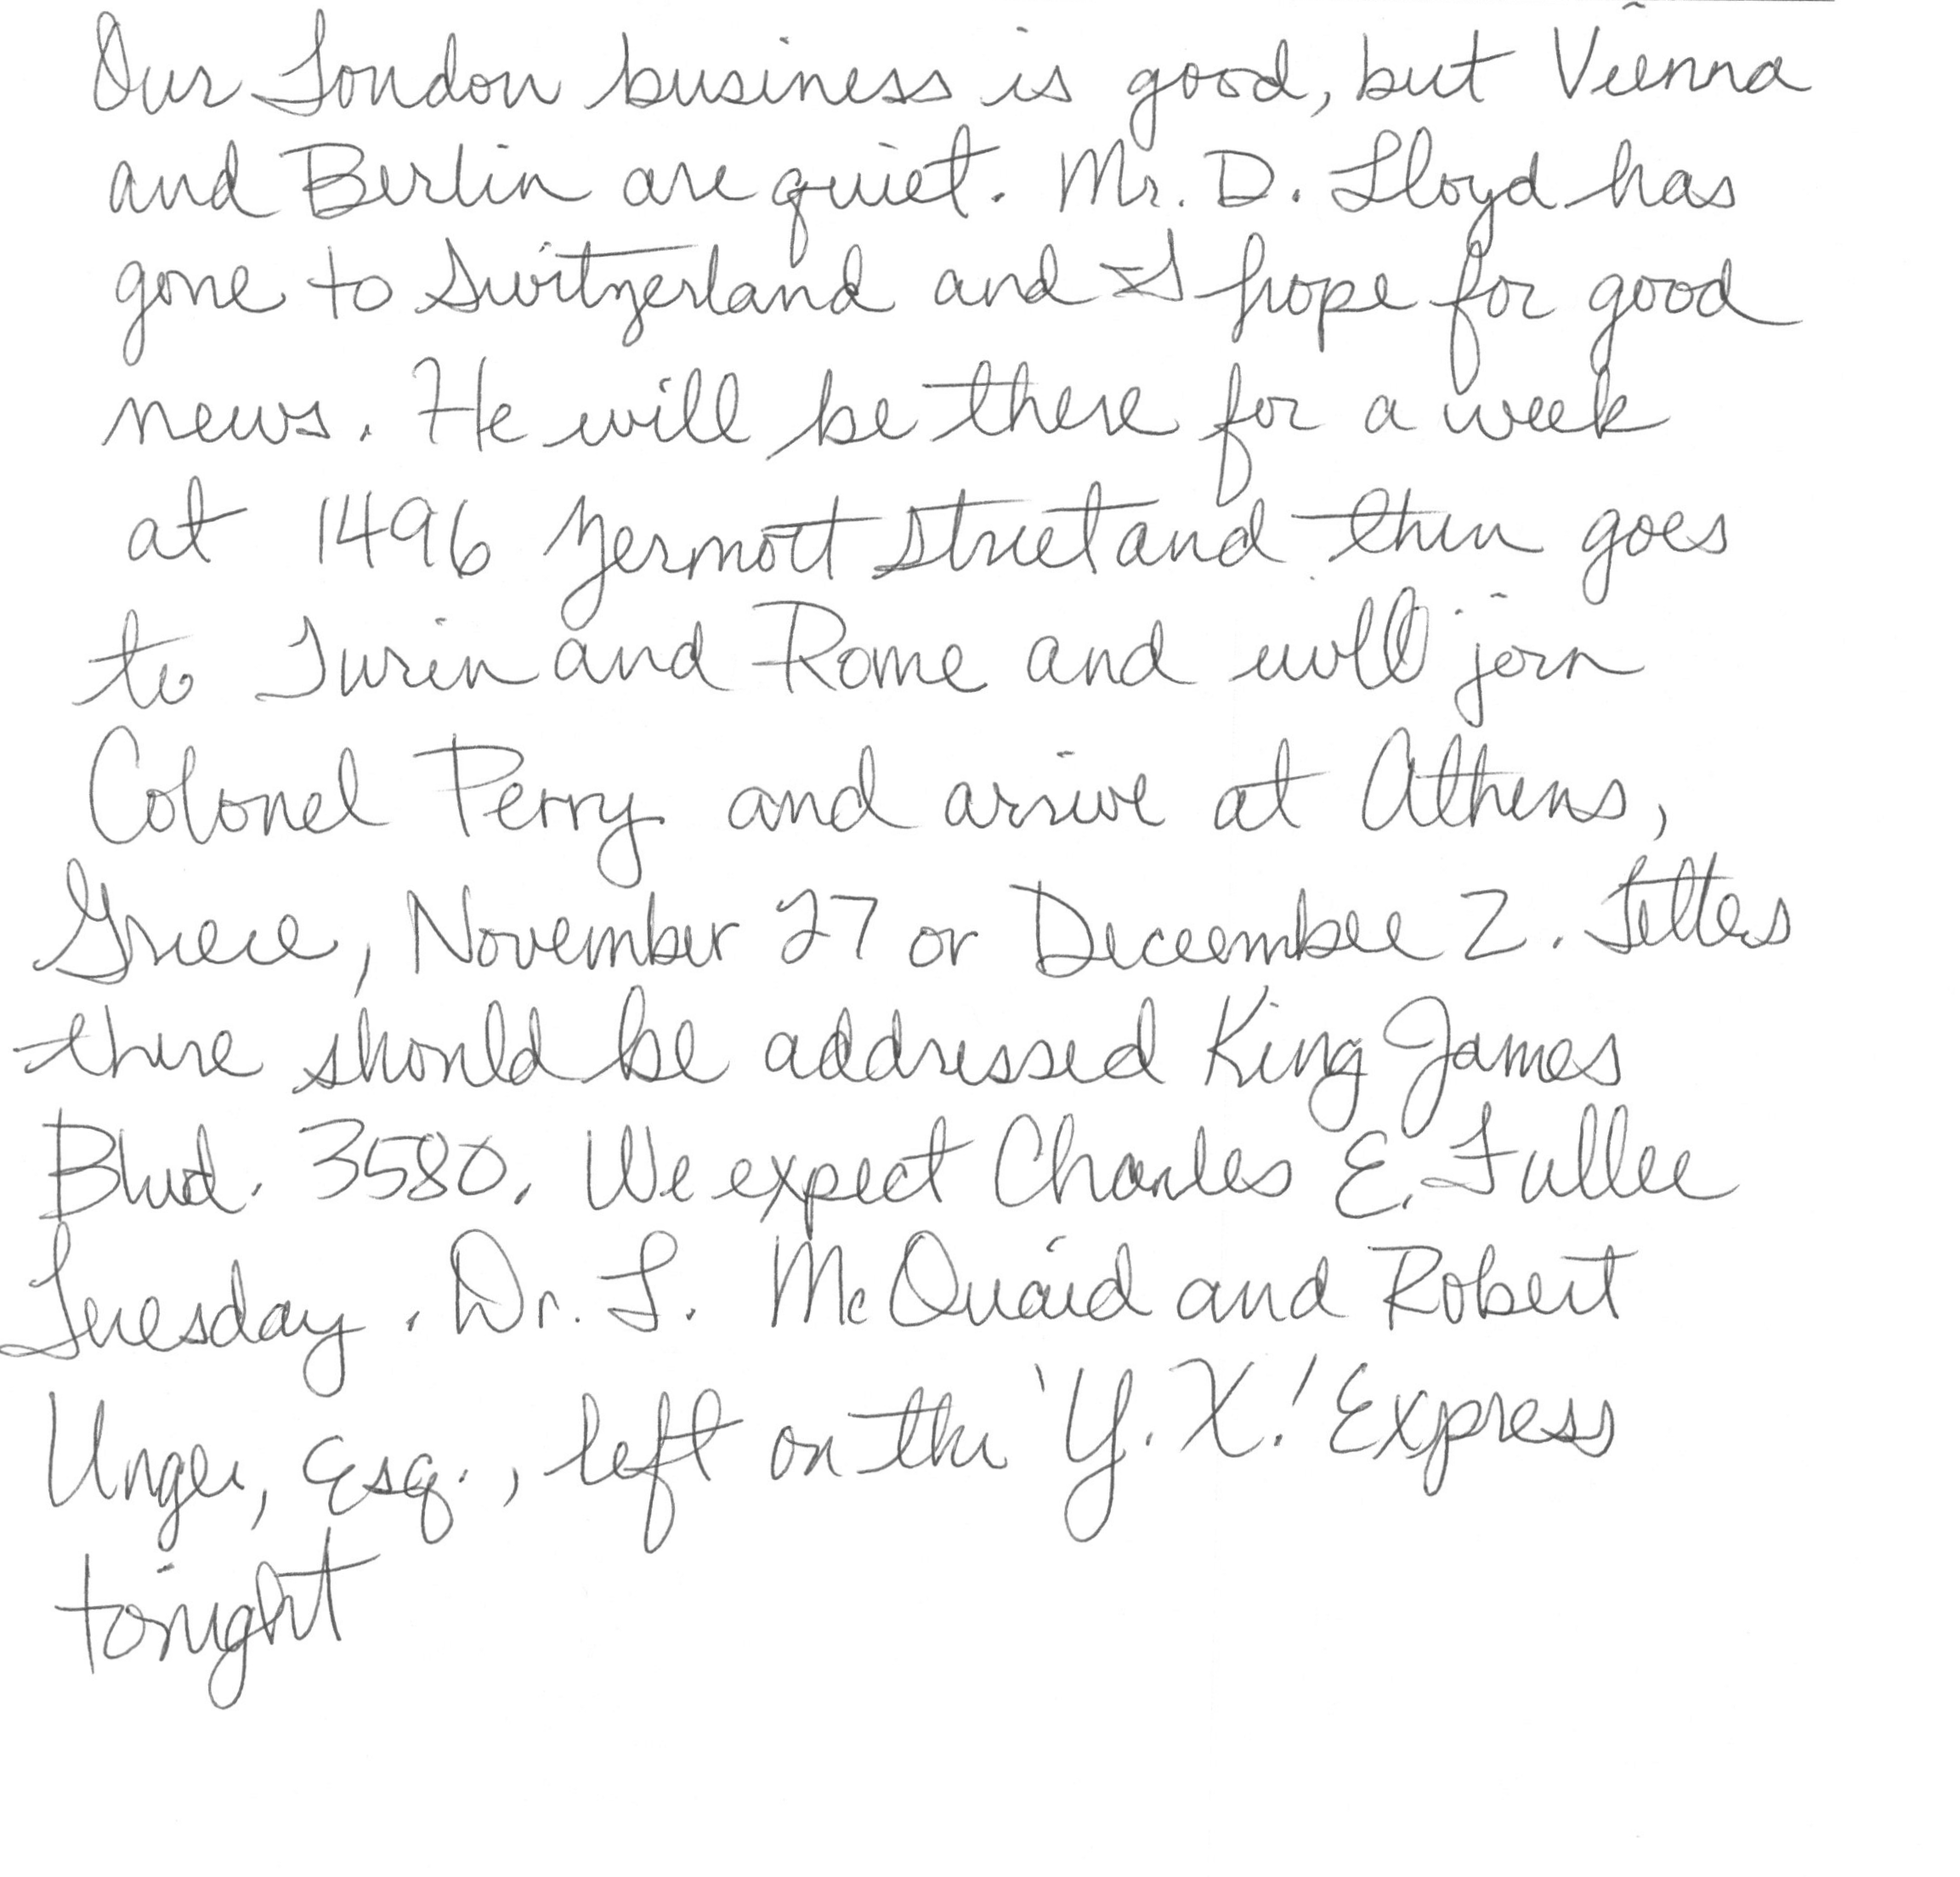 Our London business is good, but Vienna
and Berlin are quiet. Mr. D. Lloyd has
gone to Switzerland and I hope for good
news. He will be there for a week
at 1496 Zermott street and then goes
to Turin and Rome and will join
Colonel Perry and arrive at Athens,
Greece, November 27 or Deceember 2. Letters
there should be addressed King James
Blvd. 3580. We expect Charles E. Fuller
Tuesday. Dr. L. McQuaid and Robert
Unger, Esq., left on the 'Y. X.' Express
tonight